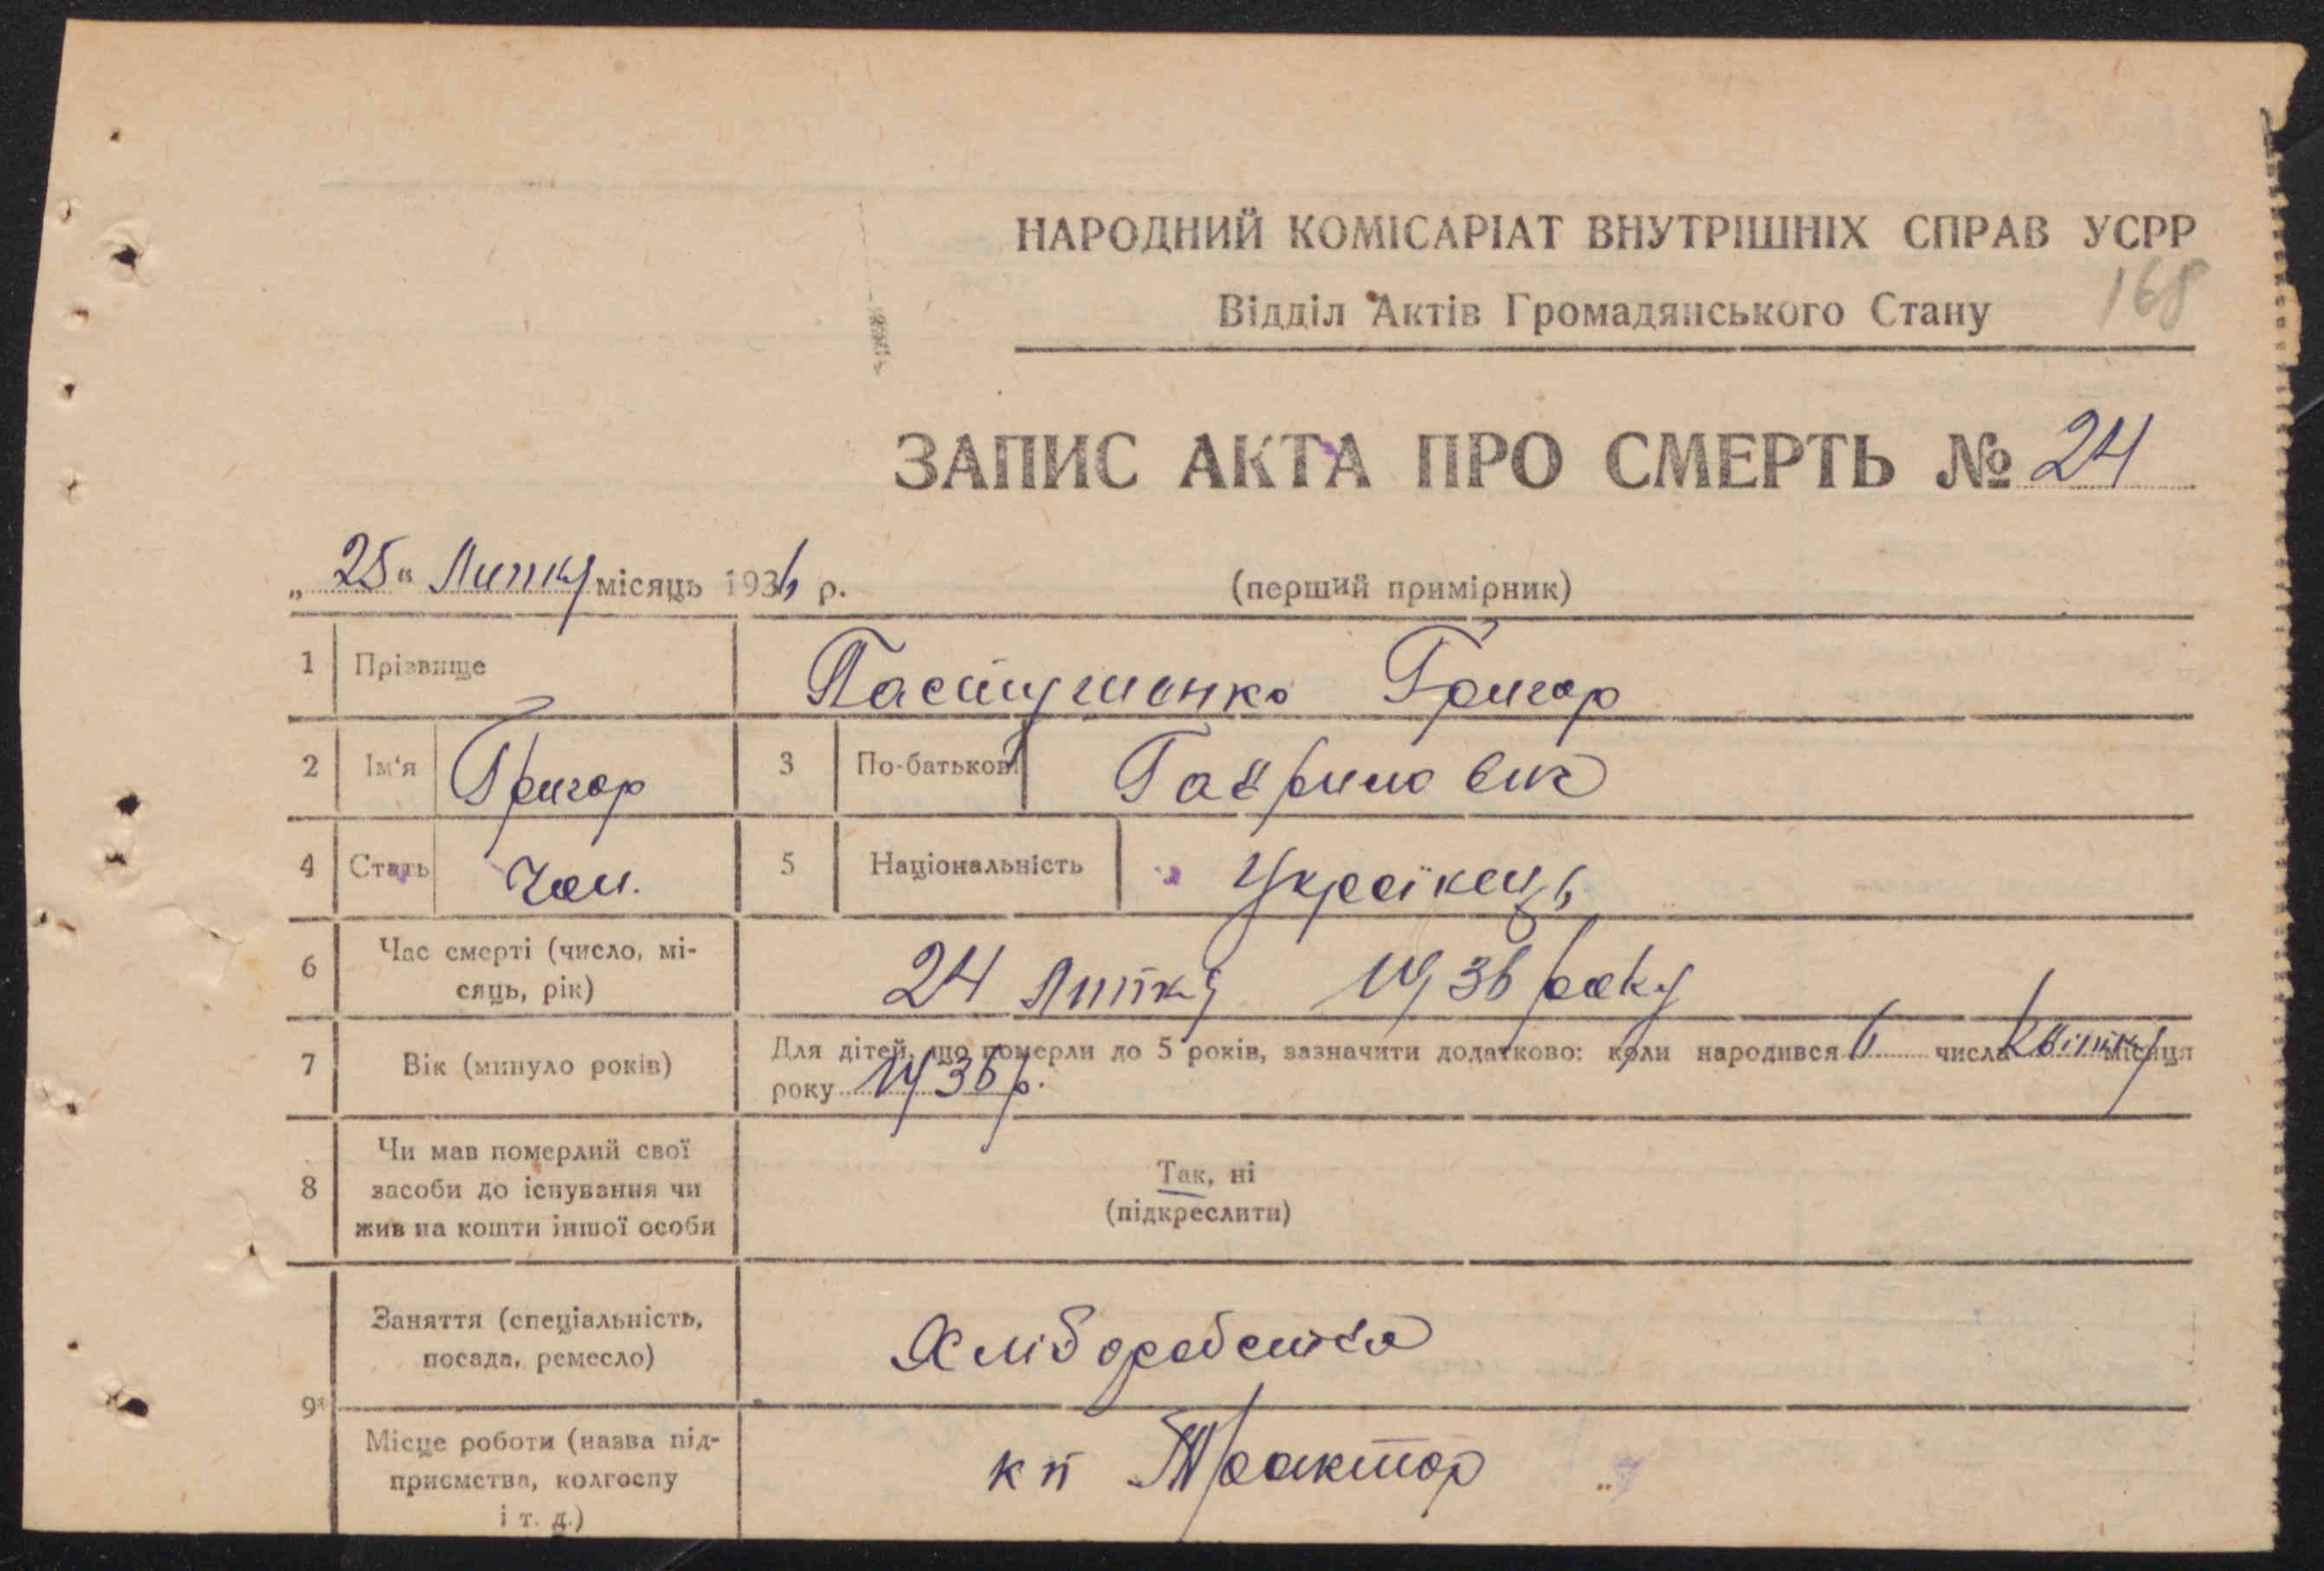 НАРОДНИЙ КОМІСАРІАТ ВНУТРІШНІХ СПРАВ УСРР
168
Відділ Актів Громадянського Стану
ЗАПИС АКТА ПРО СМЕРТЬ № 24
„ 25 “ Липня місяць 1936 р.
(перший примірник)
1 Прізвище Пастушонко Григор
2 Ім'я Григор 3 По-батькові Гаврило вич
4 Стать Чол. 5 Національність Українець
6 Час смерті (число, мі-
сяць, рік) 24 Липня 1936 року
7 Вік (минуло років) Для дітей, що померли до 5 років, зазначити додатково: коли народився числа Квітня місяця
року 1936 р.
8 Чи мав померлий свої
засоби до існування чи
жив на кошти іншої особи
Так, ні
(підкреслити)
9 Заняття (спеціальність,
посада, ремесло)
Місце роботи (назва під-
приємства, колгоспу
і т. д.)
кп Трактор